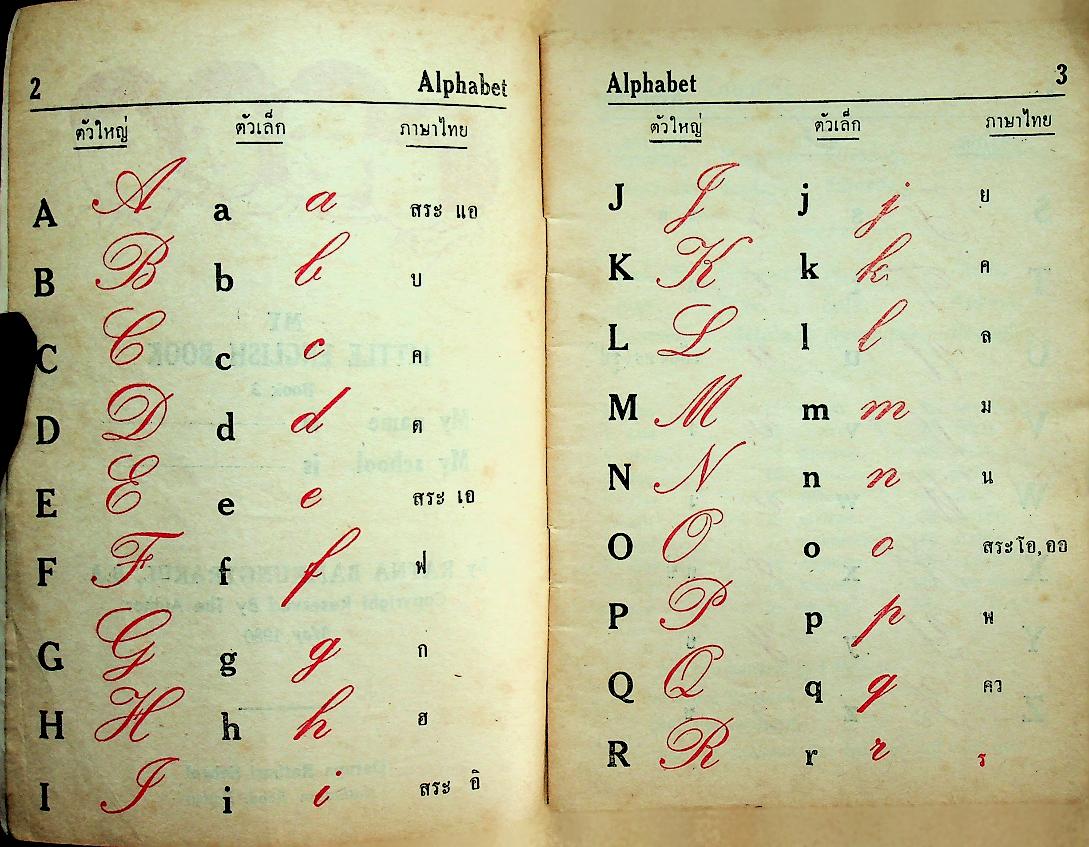 2 Alphabet
ตัวใหญ่ ตัวเล็ก ภาษาไทย
A A a a สระ แอ
B B b b บ
C C c c ค
D D d d ด
E E e e สระ เอ
F F f f ฟ
G G g g ก
H H h h ฮ
I I i i สระ อิ
Alphabet 3
ตัวใหญ่ ตัวเล็ก ภาษาไทย
J J j j ย
K K k k ค
L L l l ล
M M m m ม
N N n n น
O O o o สระโอ, ออ
P P p p พ
Q Q q q คว
R R r r ร